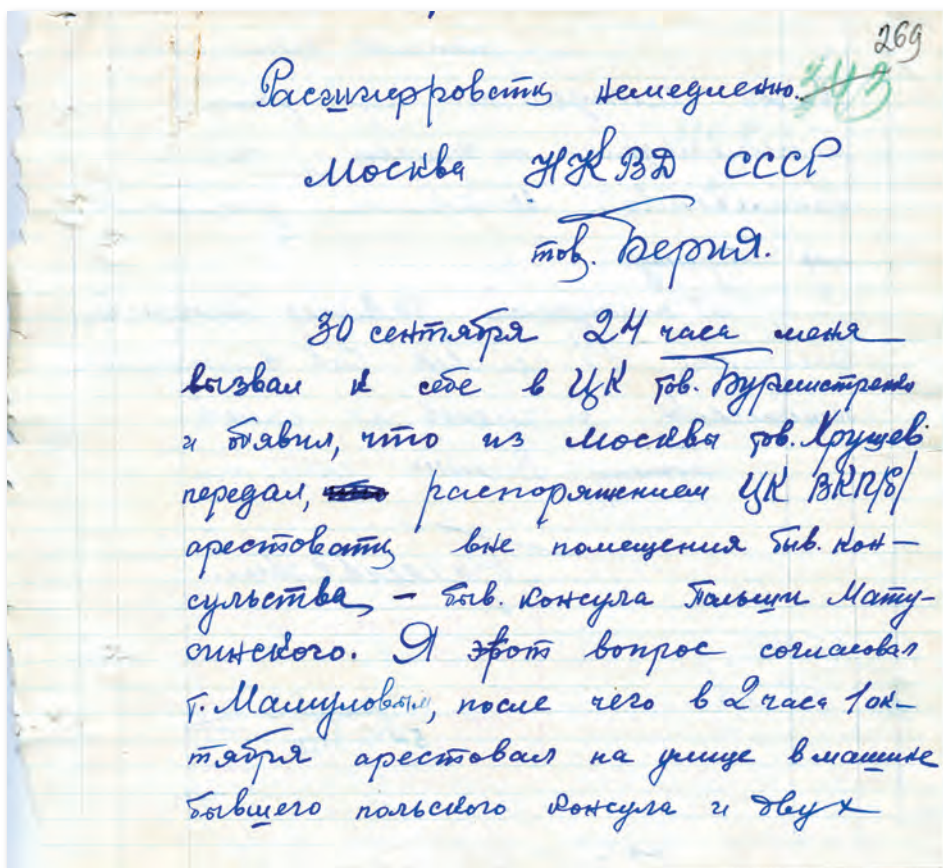 269
343
Расшифровать немедленно.
Москва НКВД СССР
тов. Берия.
30 сентября 24 часа меня
вызвал к себе в ЦК тов. Бурмистенко
и объявил, что из Москвы тов. Хрущев
передал, распоряжением ЦК ВКП/б/
арестовать вне помещения быв. кон-
сульства, - быв. консула Польши Мату-
синского. Я этот вопрос согласовал
т. Мамуловым, после чего в 2 часа 1 ок-
тября арестовал на улице в машине
бывшего польского консула и двух